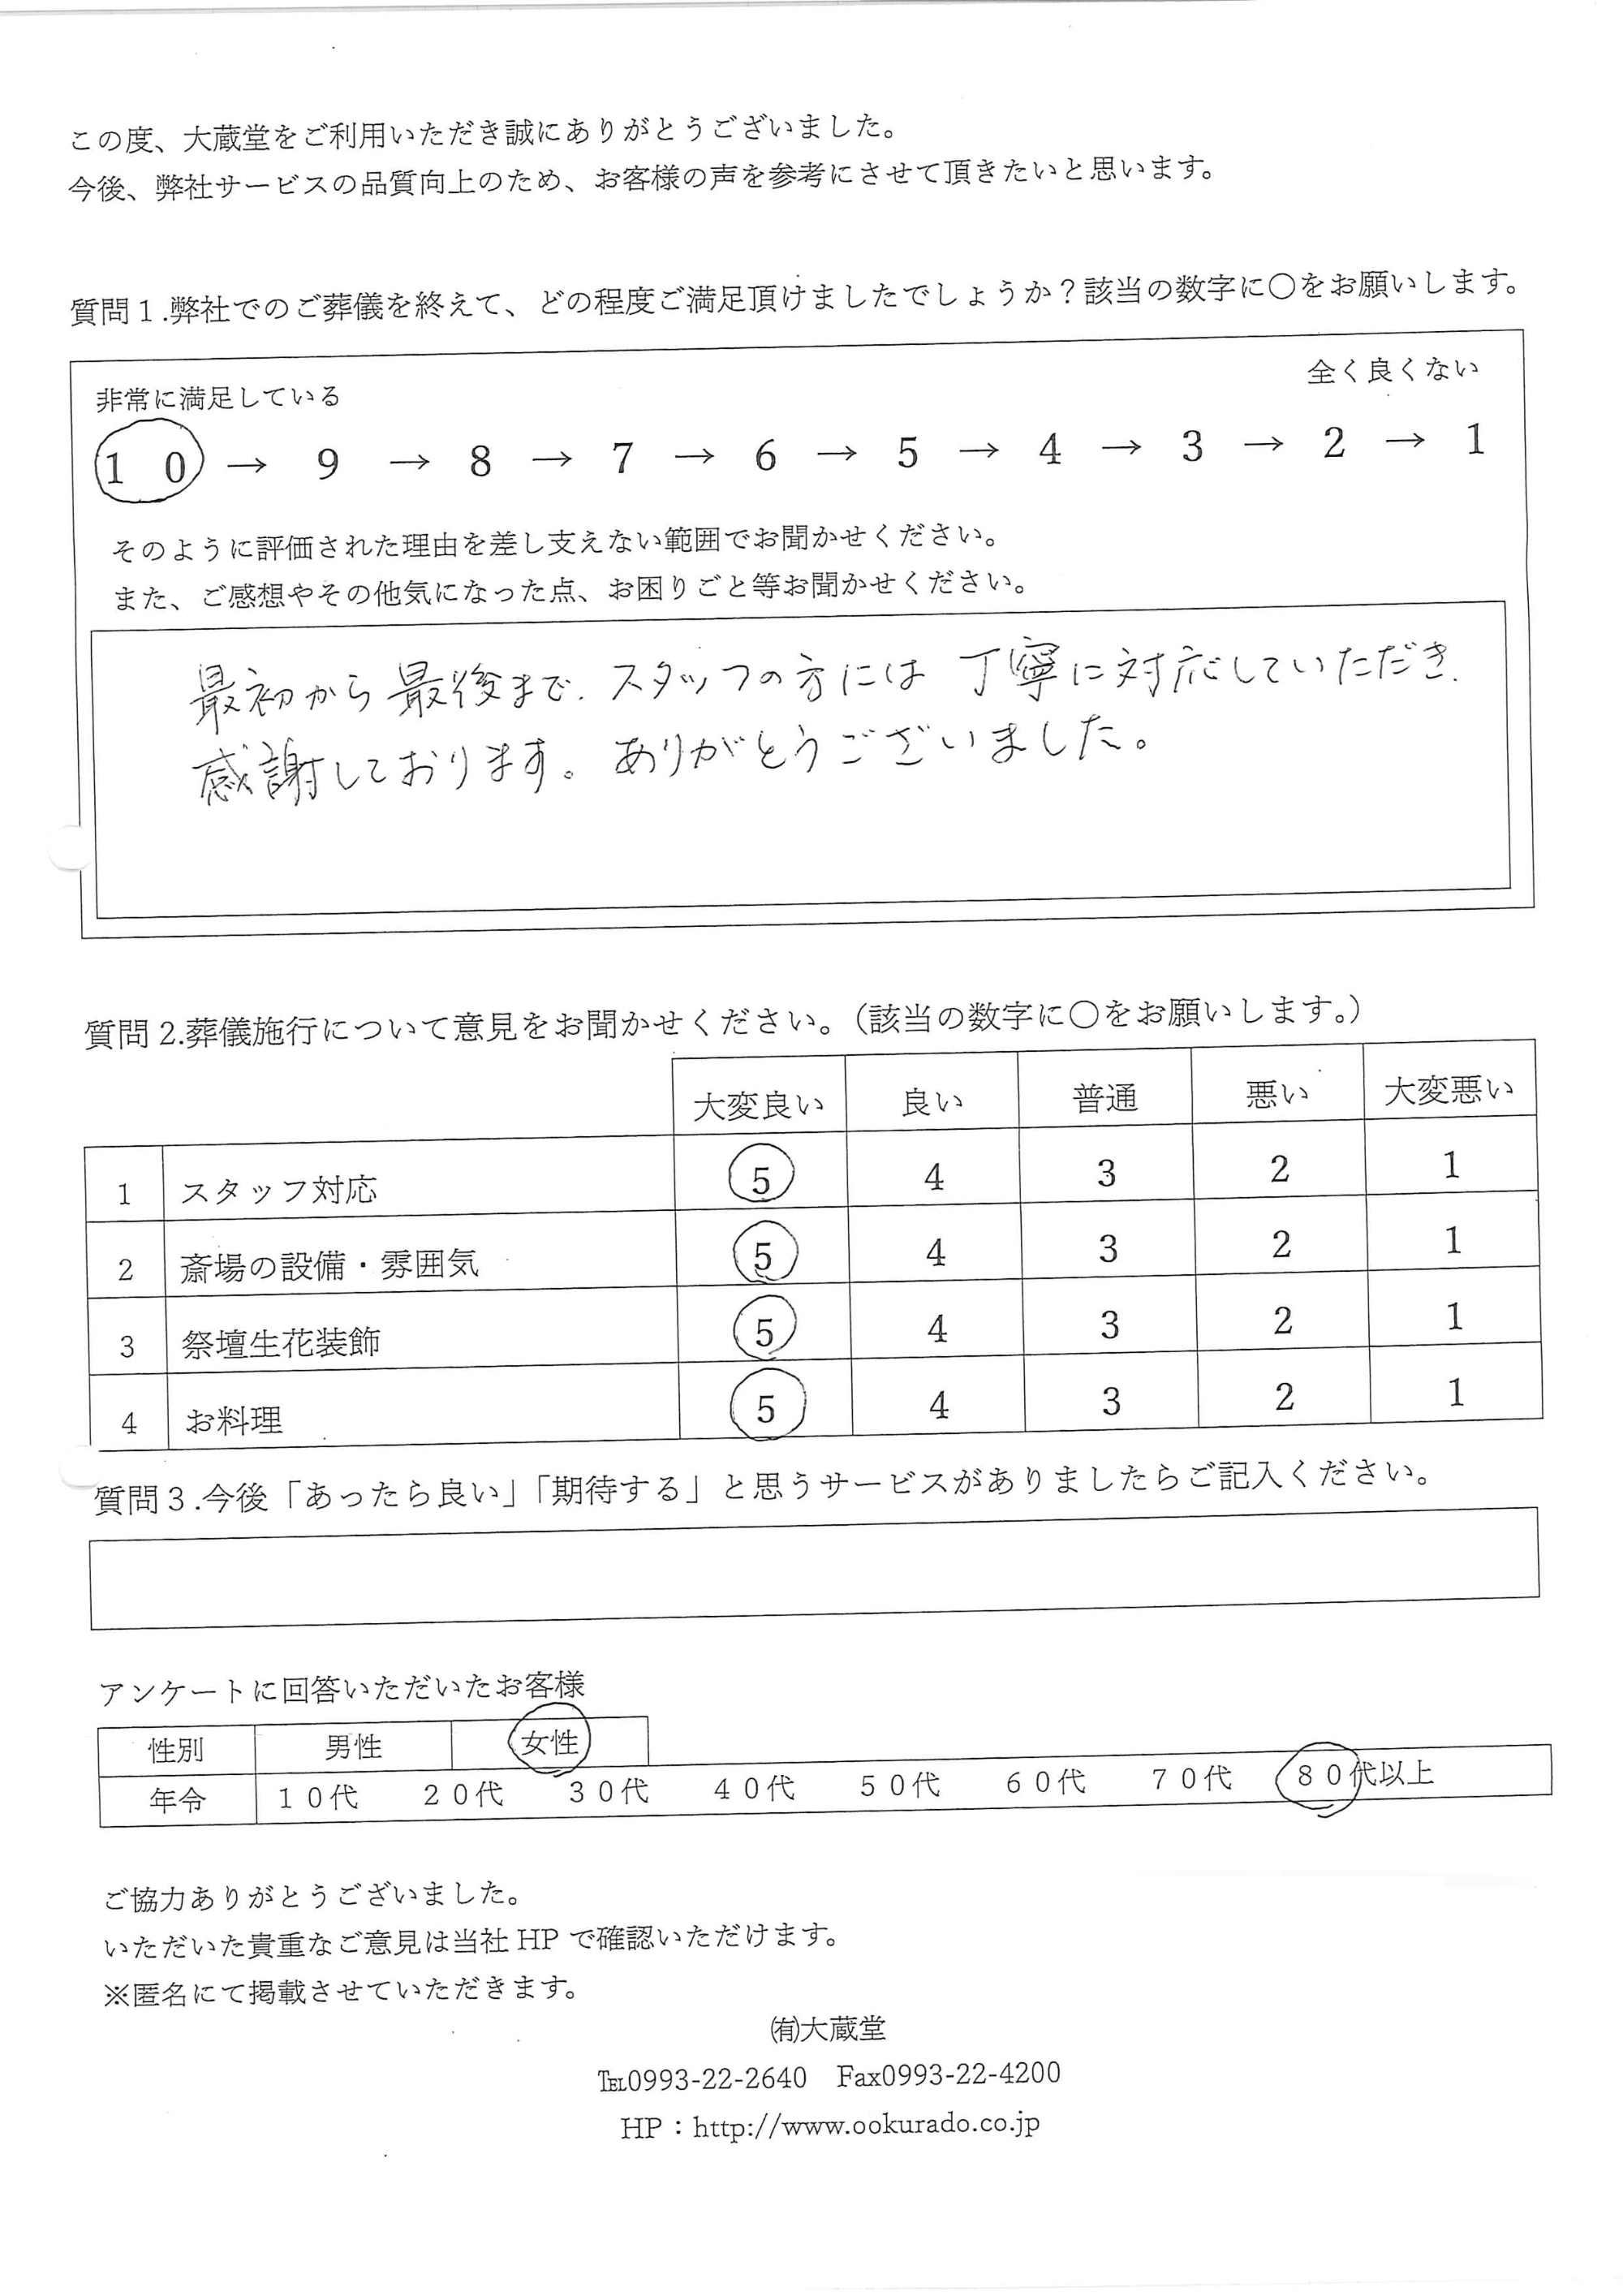 この度、大蔵堂をご利用いただき誠にありがとうございました。
今後、弊社サービスの品質向上のため、お客様の声を参考にさせて頂きたいと思います。
質問１.弊社でのご葬儀を終えて、どの程度ご満足頂けましたでしょうか？該当の数字に〇をお願いします。
非常に満足している 全く良くない
１０ → ９ → ８ → ７ → ６ → ５ → ４ → ３ → ２ → １
そのように評価された理由を差し支えない範囲でお聞かせください。
また、ご感想やその他気になった点、お困りごと等お聞かせください。
最初から最後まで、スタッフの方には丁寧に対応していただき、
感謝しております。ありがとうございました。
質問 2.葬儀施行について意見をお聞かせください。（該当の数字に〇をお願いします。）
大変良い 良い 普通 悪い 大変悪い
1 スタッフ対応 5 4 3 2 1
2 斎場の設備・雰囲気 5 4 3 2 1
3 祭壇生花装飾 5 4 3 2 1
4 お料理 5 4 3 2 1
質問３.今後「あったら良い」「期待する」と思うサービスがありましたらご記入ください。
アンケートに回答いただいたお客様
性別 男性 女性
年令 １０代 ２０代 ３０代 ４０代 ５０代 ６０代 ７０代 ８０代以上
ご協力ありがとうございました。
いただいた貴重なご意見は当社 HP で確認いただけます。
※匿名にて掲載させていただきます。
㈲大蔵堂
℡0993-22-2640 Fax0993-22-4200
HP：http://www.ookurado.co.jp